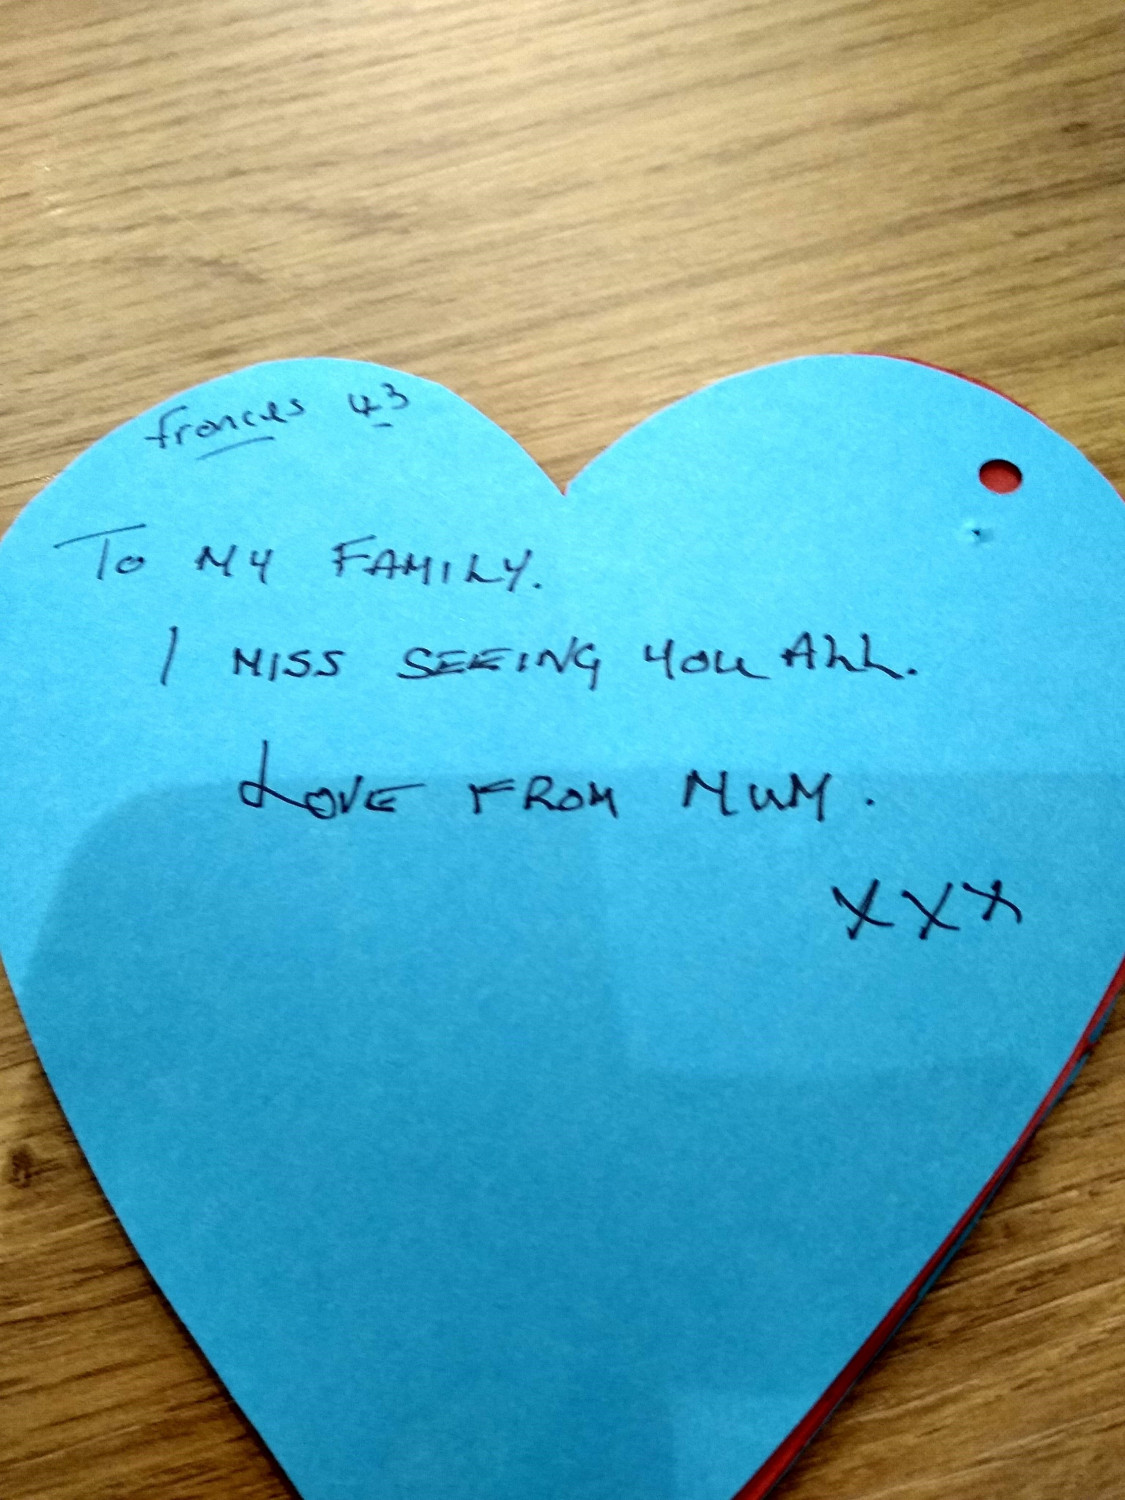 Frances 43
To MY FAMILY.
I MISS SEEING YOU ALL.
LOVE FROM MUM.
XXX